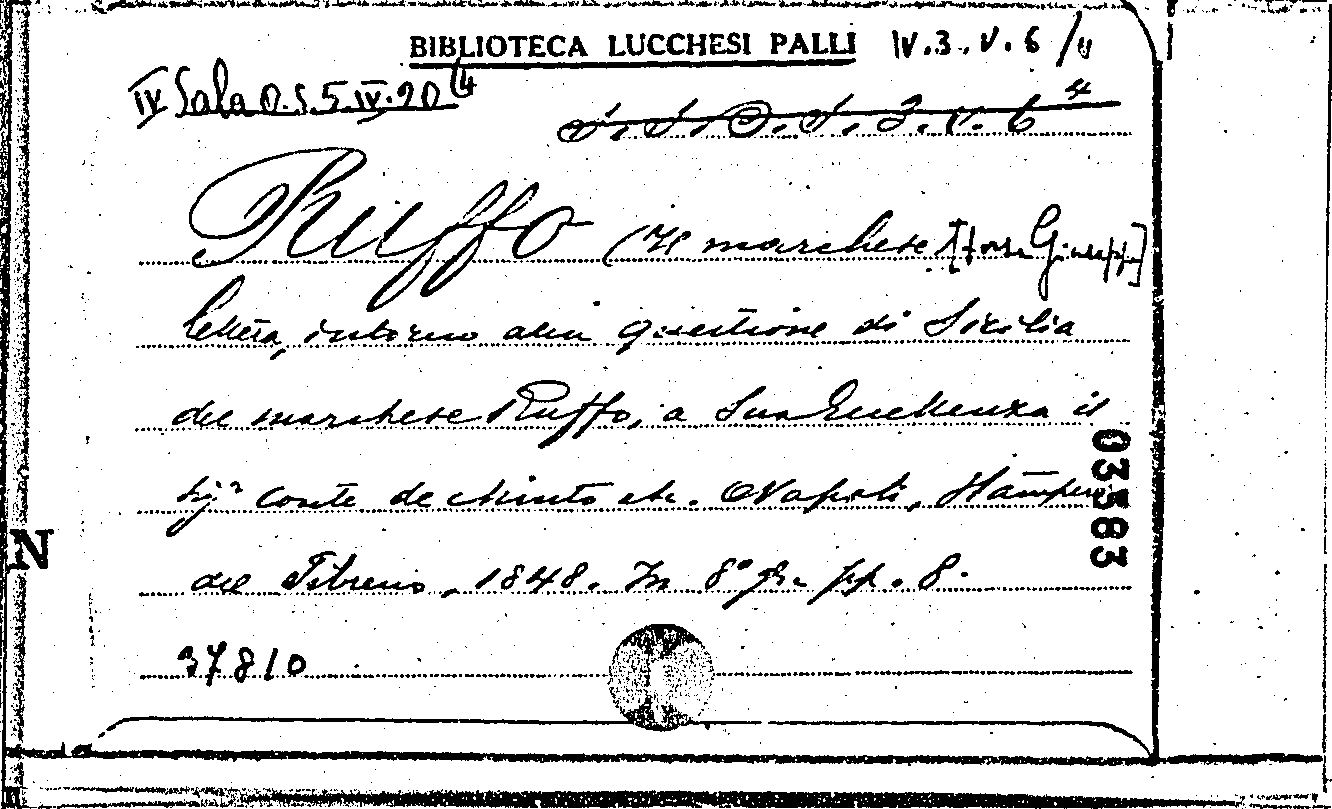 BIBLIOTECA LUCCHESI PALLI IV.3.V.6/4
IV Sala O.S.5.IV.20(4
S. S. O. S. 3. V. 6 4
Ruffo (Il marchese) [forse Giuseppe]
Lettera, intorno alla questione di Sicilia
del marchese Ruffo, a Sua Eccellenza il
Sigr Conte de Minto etc. Napoli, Stamperia
del Fibreno, 1848. In 8° gr. pp. 8.
37810
03583
N